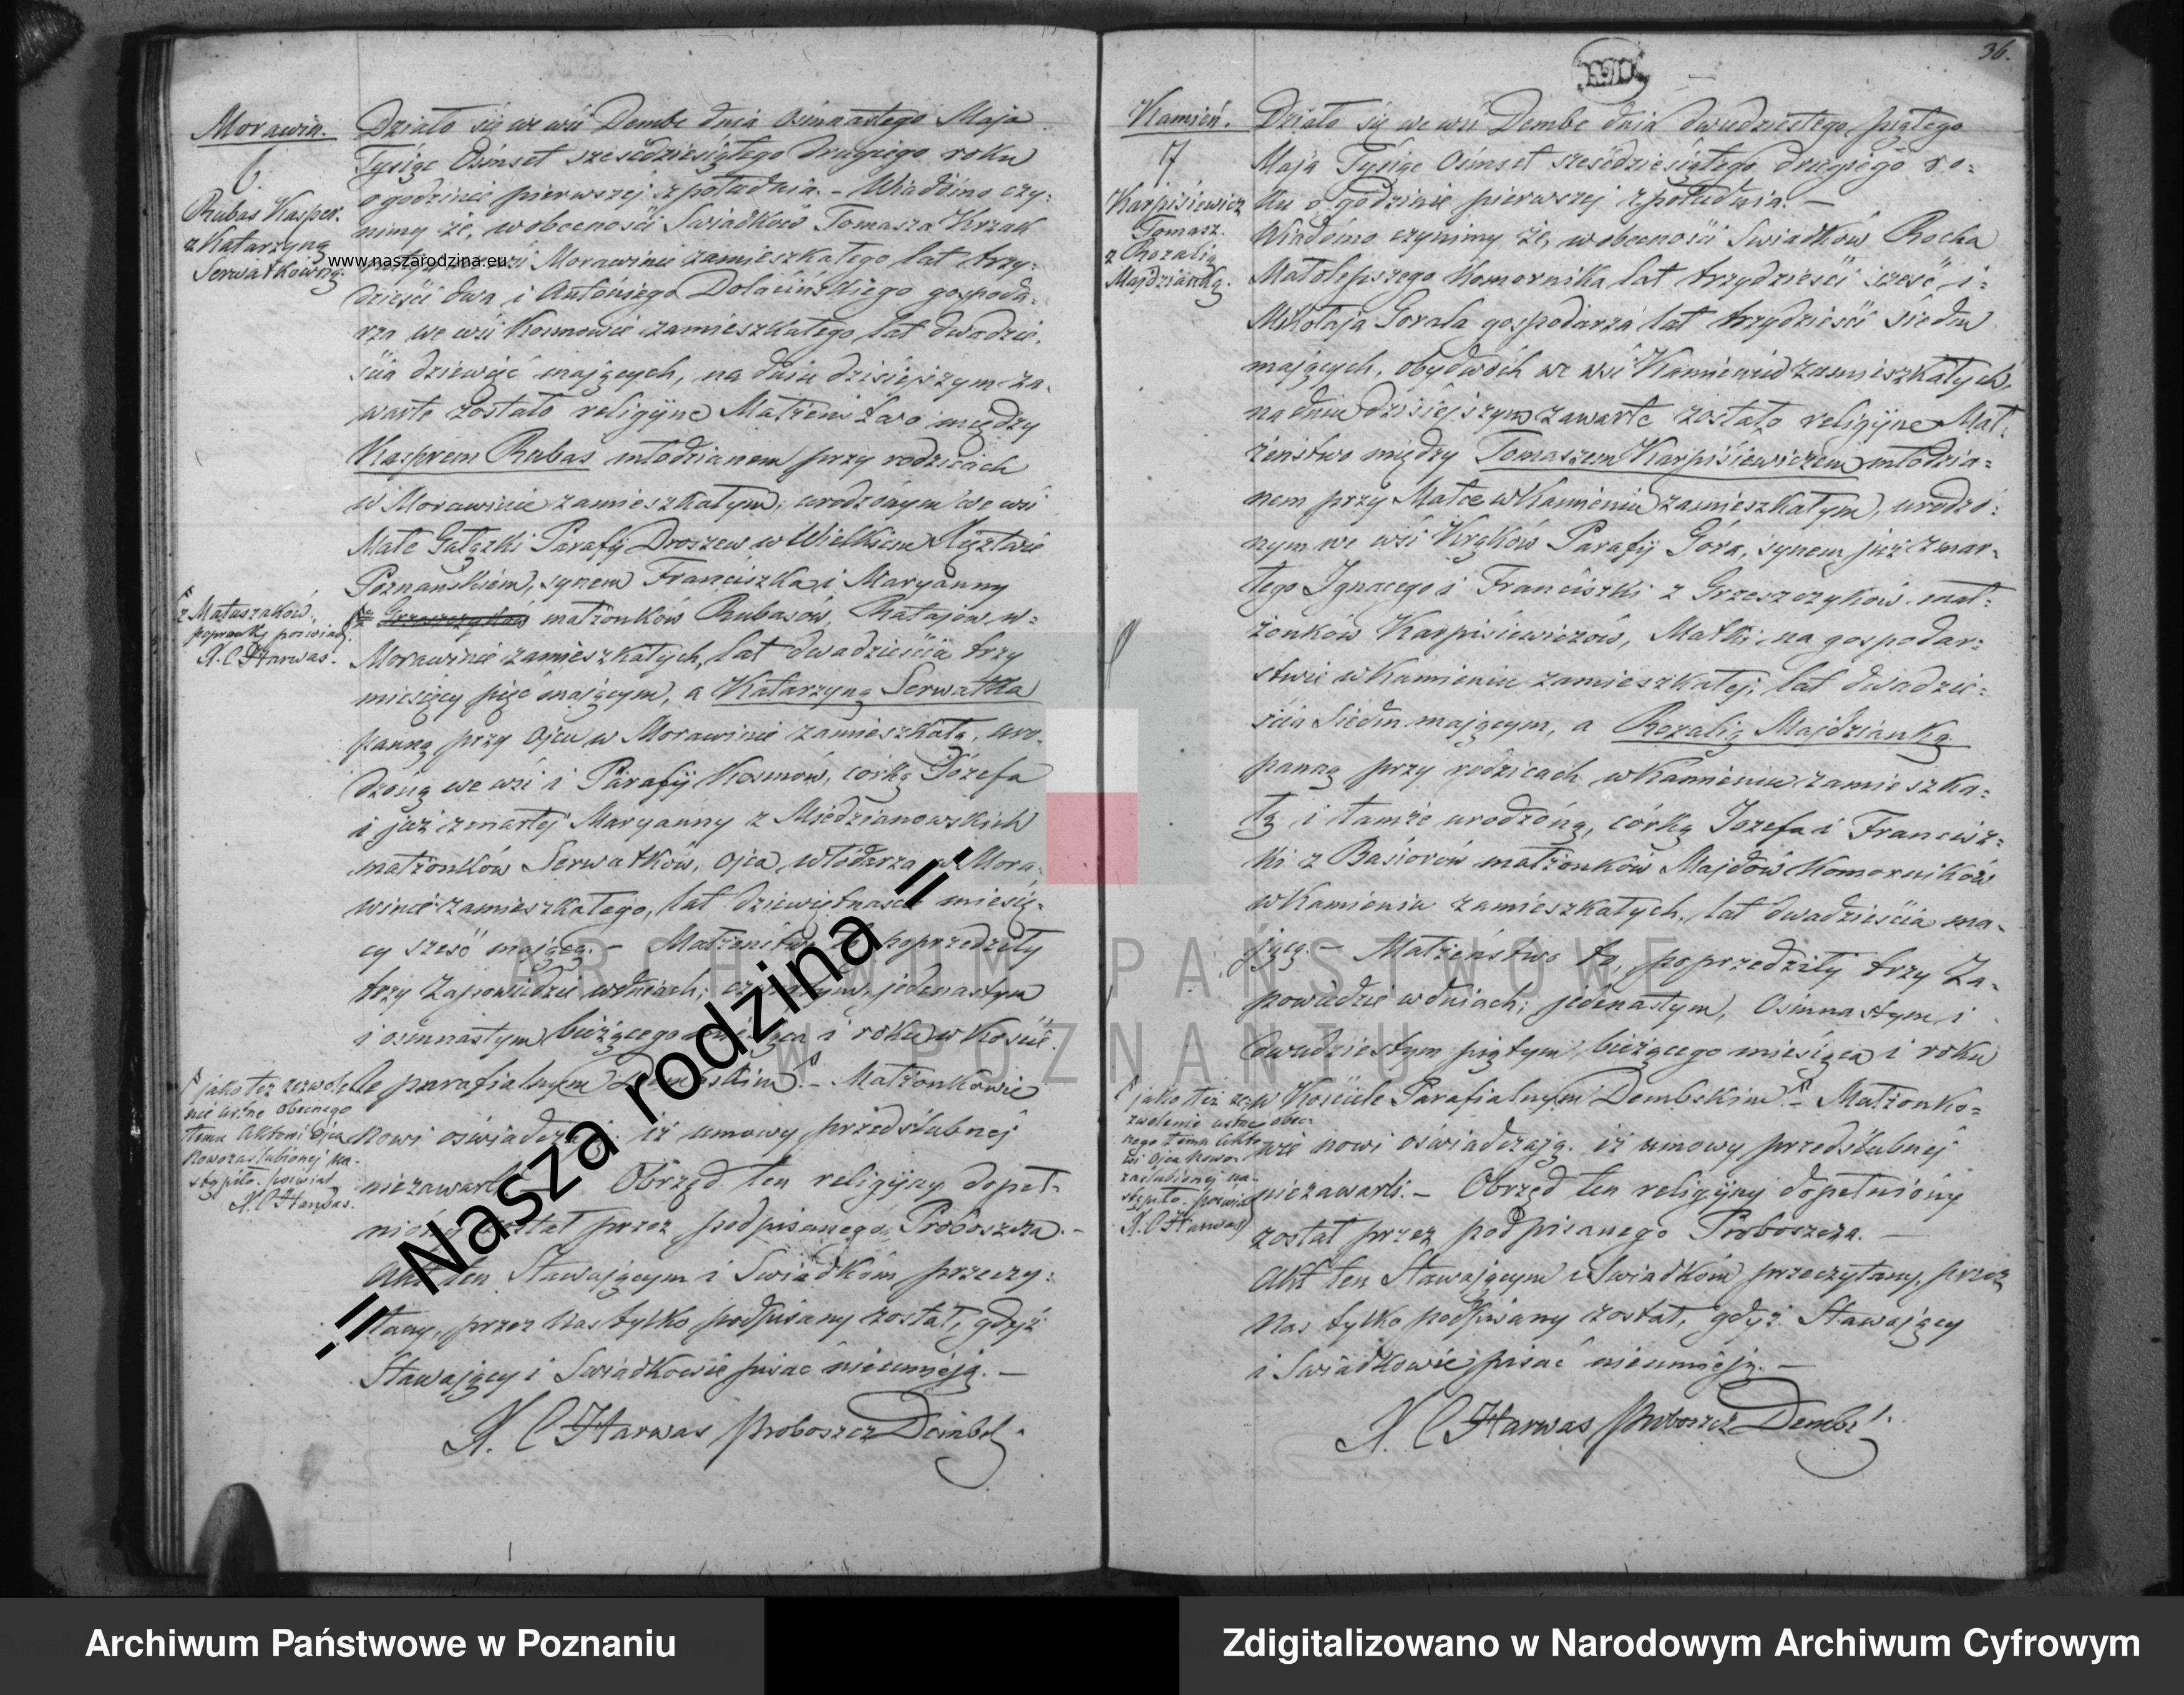 Morawin.
6.
Rubas Kasper.
z Katarzyną
Serwatkówną.
Działo się we wsi Dembe dnia Ośmnastego Maja
Tysiąc Ośmset sześcdziesiątego drugiego roku
o godzinie pierwszej z południa. – Wiadomo czy:
nimy że, w obecności Świadków Tomasza Krzak
www.naszarodzina.eu
Morawinie zamieszkałego lat trzy:
dzieści dwa i Antoniego Dolacińskiego gospoda:
rza we wsi Kosmowie zamieszkałego lat dwadzie:
ścia dziewięć mających, na dniu dzisiejszym za:
warte zostało religijne Małżeństwo między
Kasprem Rubas młodzianem przy rodzicach
w Morawinie zamieszkałym, urodzonym we wsi
Małe Gałązki Parafij Droszew w Wielkiem Xięztwie
Poznańskiem, synem Franciszka i Maryanny
z Matuszaków.
poprawkę poświad.
X. C Harwas.
małżonków Rubasów, Ratajów w:
Morawinie zamieszkałych, lat dwadzieścia trzy
miesięcy pięć mającym, a Katarzyną Serwatka
panną przy Ojcu w Morawinie zamieszkałą, uro:
dzoną we wsi i Parafij Kosmów, córką Józefa
i już zmarłej Maryanny z Miedzianowskich
małżonków Serwatków, Ojca włódarza w Mora:
winie zamieszkałego, lat dziewiętnaście miesię:
cy sześć mającą. – Małżeństwo to poprzedziły
trzy Zapowiedzie w dniach; czwartym, jedenastym
i ośmnastym bieżącego miesiąca i roku w Koście:
le parafialnym Dembskim. – Małżonkowie
jako też zezwole
nie ustne obecnego
temu Aktowi Ojca
Nowozaślubionej na:
stąpiło. poświad
X. C Harwas.
nowi oświadczają iż umowy przedślubnej
niezawarli. Obrząd ten religijny dopeł:
niony został przez podpisanego Proboszcza. –
Akt ten Stawającym i Świadkom przeczy:
tany, przez Nas tylko podpisany został, gdyż
Stawający i Świadkowie pisać nieumieją. –
X. C Harwas Proboszcz Dembsk.
-= Nasza rodzina =-
36.
Kamień.
7
Karpisiewicz
Tomasz.
z Rozalią
Majdzianką.
Działo się we wsi Dembe dnia dwudziestego piątego
Maja Tysiąc Ośmset sześćdziesiątego drugiego ro:
ku o godzinie pierwszej z południa. –
Wiadomo czynimy że, w obecności Świadków Rocha
Małolepszego Komornika lat trzydzieści sześć i:
Mikołaja Gorala gospodarza lat trzydzieści siedm
mających, obydwóch we wsi Kamieniu zamieszkałych,
na dniu dzisiejszym zawarte zostało religijne Mał:
żeństwo między Tomaszem Karpisiewiczem młodzia:
nem przy Matce w Kamieniu zamieszkałym, urodzo:
nym we wsi Krąków Parafij Góra, synem już zmar:
łego Ignacego i Franciszki z Grzeszczyków mał:
żonków Karpisiewiczów, Matki na gospodar:
stwie w Kamieniu zamieszkałej, lat dwadzie:
ścia siedm mającym, a Rozalią Majdzianką
panną przy rodzicach w Kamieniu zamieszka:
łą i tamże urodzoną, córką Józefa i Francisz:
ki z Basiorów małżonków Majdów Komorników
w Kamieniu zamieszkałych, lat dwadzieścia ma:
jącą. – Małżeństwo to, poprzedziły trzy Za:
powiedzie w dniach; jedenastym, Ośmnastym i
dwudziestym piątym bieżącego miesiąca i roku
w Kościele Parafialnym Dembskim. – Małżonko:
jako też ze:
zwolenie ustne obec:
nego temu Akto
wi Ojca Nowo:
zaślubionej na:
stąpiło. poświad
X. C Harwas
wie nowi oświadczają iż umowy przedślubnej
niezawarli. – Obrząd ten religijny dopełniony
został przez podpisanego Proboszcza. –
Akt ten Stawającym i Świadkom przeczytany, przez
Nas tylko podpisany został, gdyż Stawający
i Świadkowie pisać nieumieją. –
X. C Harwas Proboszcz Dembs.
ARCHIWUM PAŃSTWOWE
W POZNANIU
Archiwum Państwowe w Poznaniu
Zdigitalizowano w Narodowym Archiwum Cyfrowym